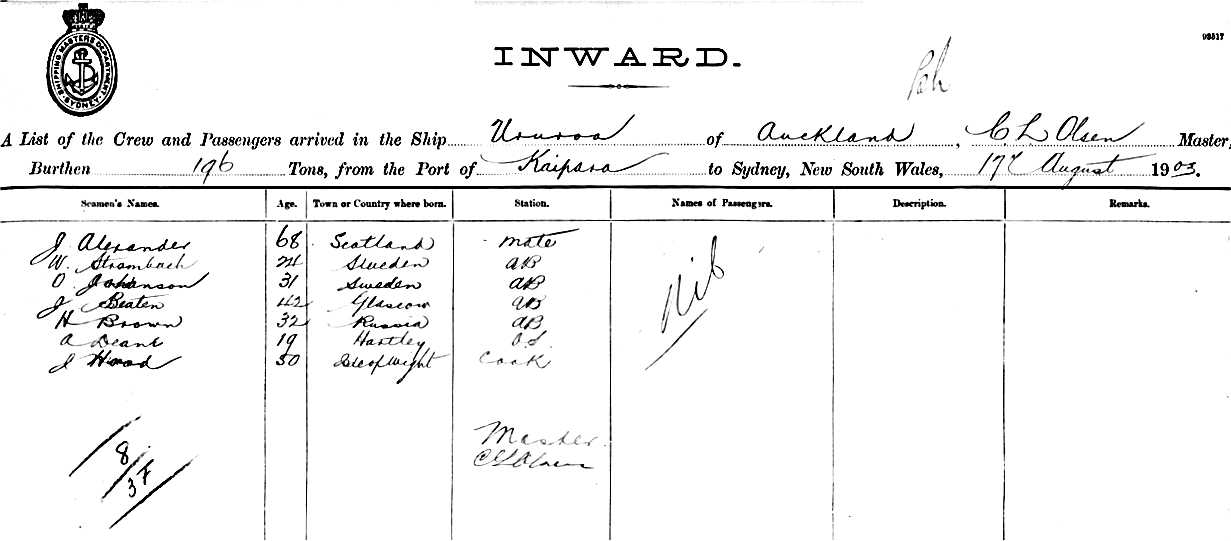 SHIPPING MASTERS DEPARTMENT SYDNEY
98517
INWARD.
A List of the Crew and Passengers arrived in the Ship Ururoa of Auckland, C L Olsen Master,
Burthen 196 Tons, from the Port of Kaipara to Sydney, New South Wales, 17 August 1903.
Seamen's Names. Age. Town or Country where born. Station. Names of Passengers. Description. Remarks.
J Alexander 68 Scotland Mate
W. Strombach 24 Sweden AB
O. Johanson 31 Sweden AB
J Beaten 42 Glascow AB
H Brown 32 Russia AB
A Deane 19 Hartley O.S.
J Hood 50 Isle of Wight Cook
Nil
Master
C L Olsen
8
3 F